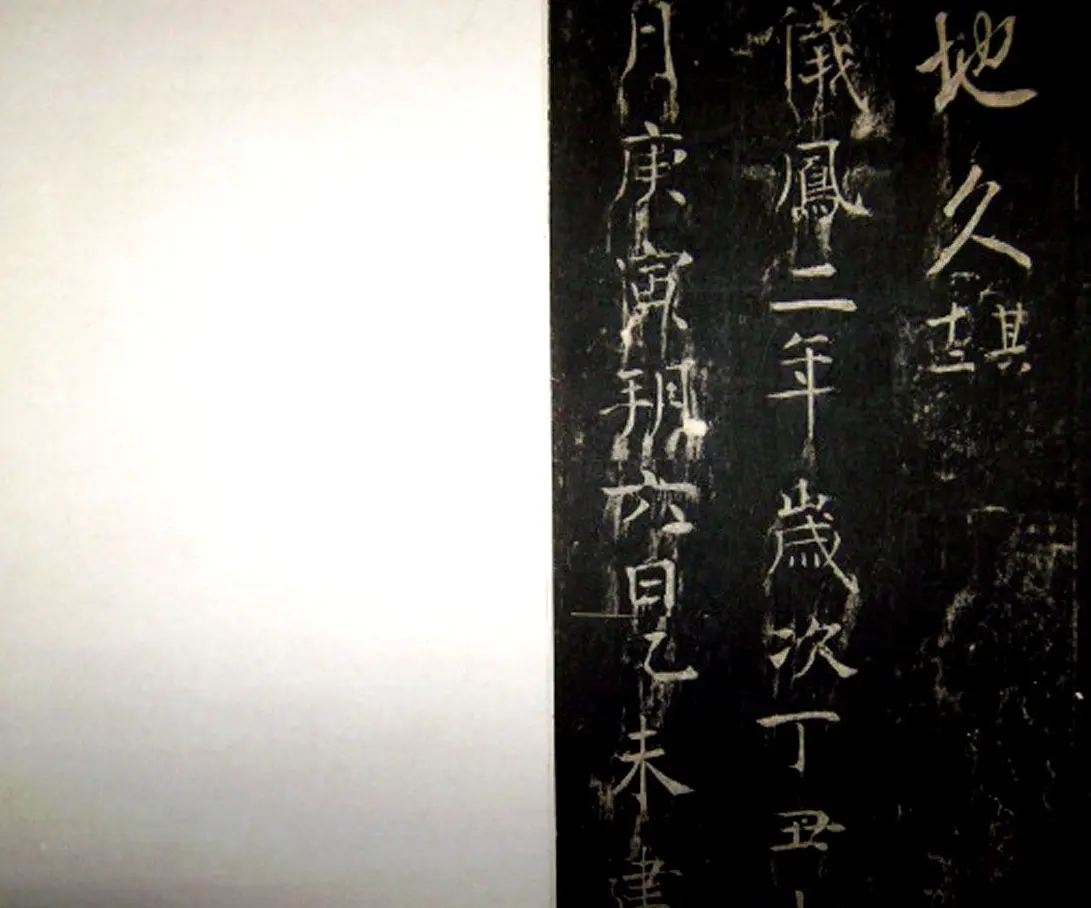 地久其
儀鳳二年歲次丁丑
月庚寅朔六日乙未建